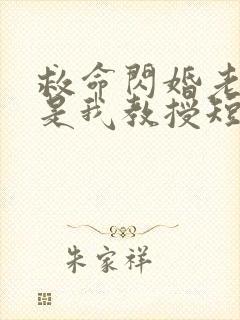 救命閃婚老
是我教授短
朱家祥